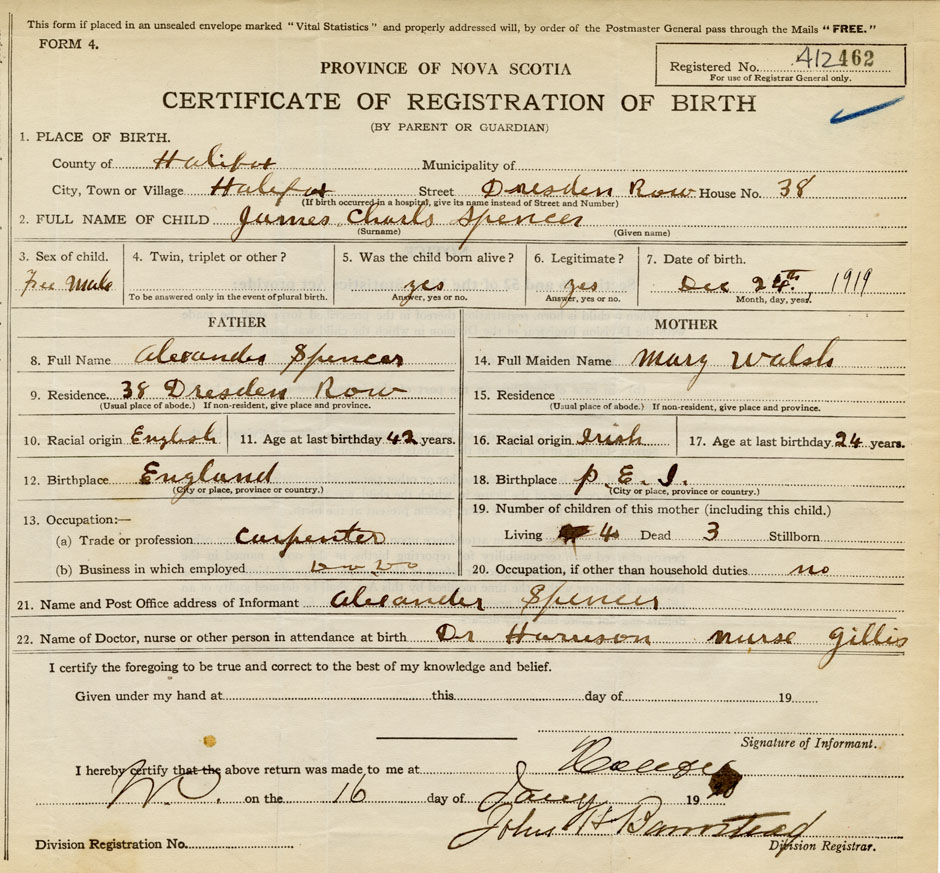 This form if placed in an unsealed envelope marked "Vital Statistics" and properly addressed will, by order of the Postmaster General pass through the Mails "FREE."
FORM 4.
Registered No. 412462
For use of Registrar General only.
PROVINCE OF NOVA SCOTIA
CERTIFICATE OF REGISTRATION OF BIRTH
(BY PARENT OR GUARDIAN)
1. PLACE OF BIRTH.
County of Halifax Municipality of
City, Town or Village Halifax Street Dresden Row House No. 38
(If birth occurred in a hospital, give its name instead of Street and Number)
2. FULL NAME OF CHILD James Charls Spencer
(Surname) (Given name)
3. Sex of child. 4. Twin, triplet or other? 5. Was the child born alive? 6. Legitimate? 7. Date of birth.
Male yes yes Dec 24th 1919
To be answered only in the event of plural birth. Answer, yes or no. Answer, yes or no. Month, day, year.
FATHER MOTHER
8. Full Name Alexander Spencer 14. Full Maiden Name Mary Walsh
9. Residence 38 Dresden Row 15. Residence
(Usual place of abode.) If non-resident, give place and province. (Usual place of abode.) If non-resident, give place and province.
10. Racial origin English 11. Age at last birthday 42 years. 16. Racial origin Irish 17. Age at last birthday 24 years.
12. Birthplace England 18. Birthplace P. E. I.
(City or place, province or country.) (City or place, province or country.)
13. Occupation:— 19. Number of children of this mother (including this child.)
(a) Trade or profession Carpenter Living 4 Dead 3 Stillborn
(b) Business in which employed 20. Occupation, if other than household duties no
21. Name and Post Office address of Informant Alexander Spencer
22. Name of Doctor, nurse or other person in attendance at birth Dr Harrison nurse Gillis
I certify the foregoing to be true and correct to the best of my knowledge and belief.
Given under my hand at this day of 19
Signature of Informant.
I hereby certify that the above return was made to me at
on the 16 day of Jany 19
John H Barnstead
Division Registration No. Division Registrar.